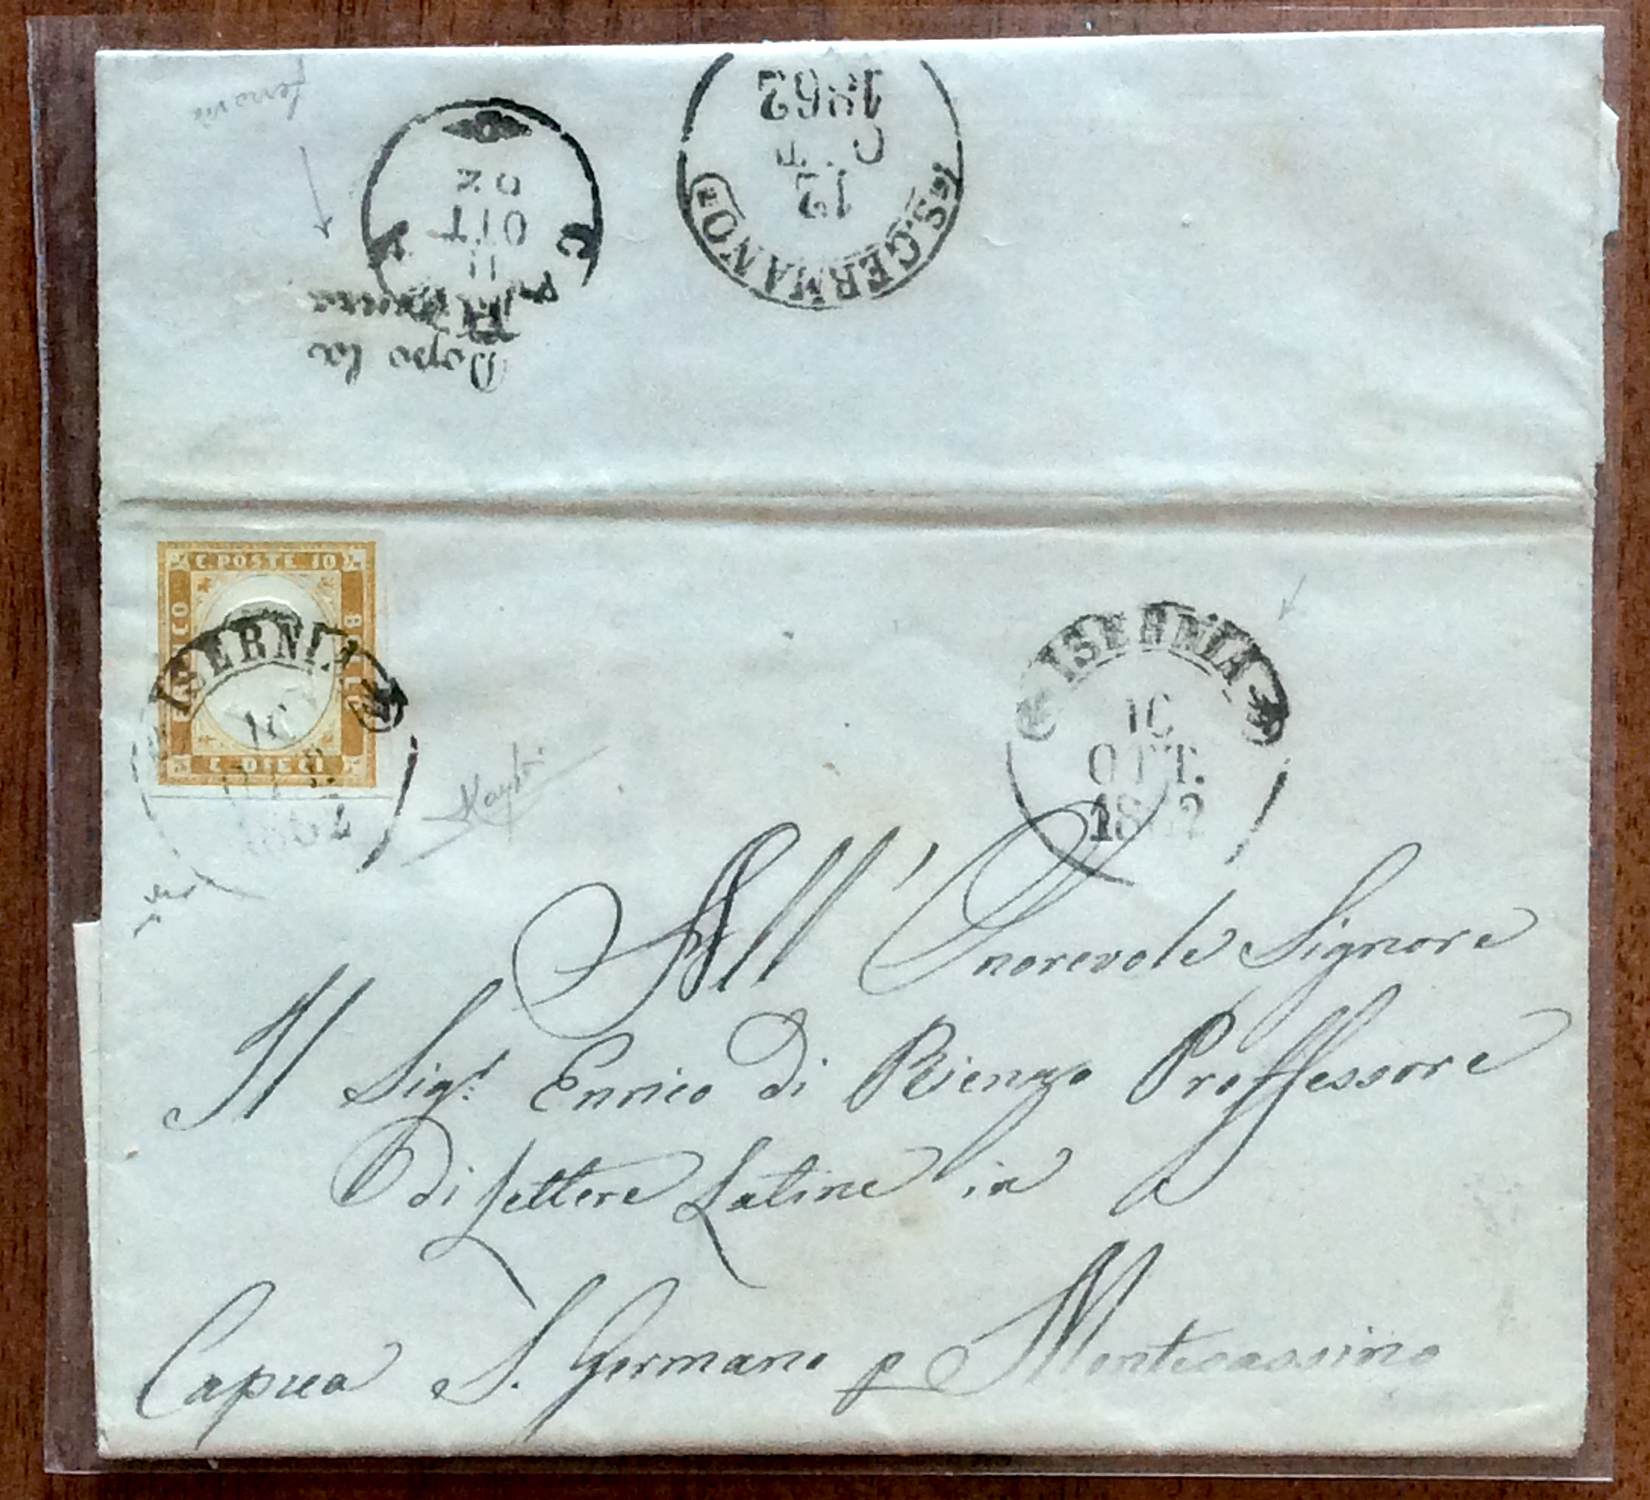 ferrovia
1862
OTT
12
S. GERMANO
62
OTT
11
C
Dopo la
Partenza
C. POSTE 10
BOLLO
FRANCO
C. DIECI
ISERNIA
10
OTT.
1862
ISERNIA
10
OTT.
1862
All' Onorevole Signore
Il Sigr. Enrico Di Rienzo Proffessore
di Lettere Latine in
Capua S. Germano p Montecassino